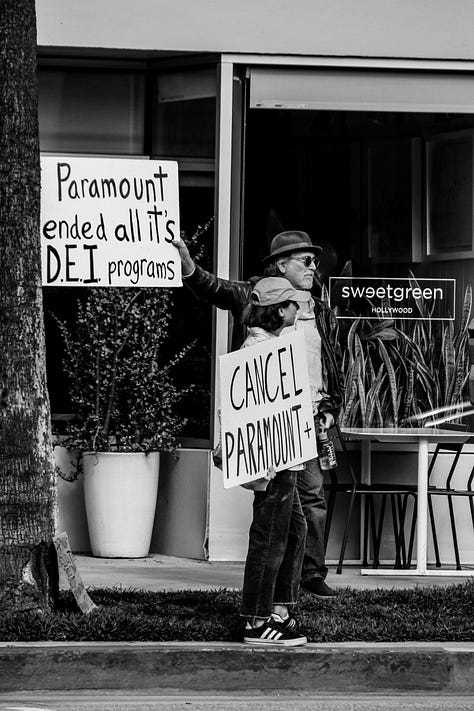 Paramount
ended all it's
D.E.I. programs
CANCEL
PARAMOUNT+
sweetgreen
HOLLYWOOD